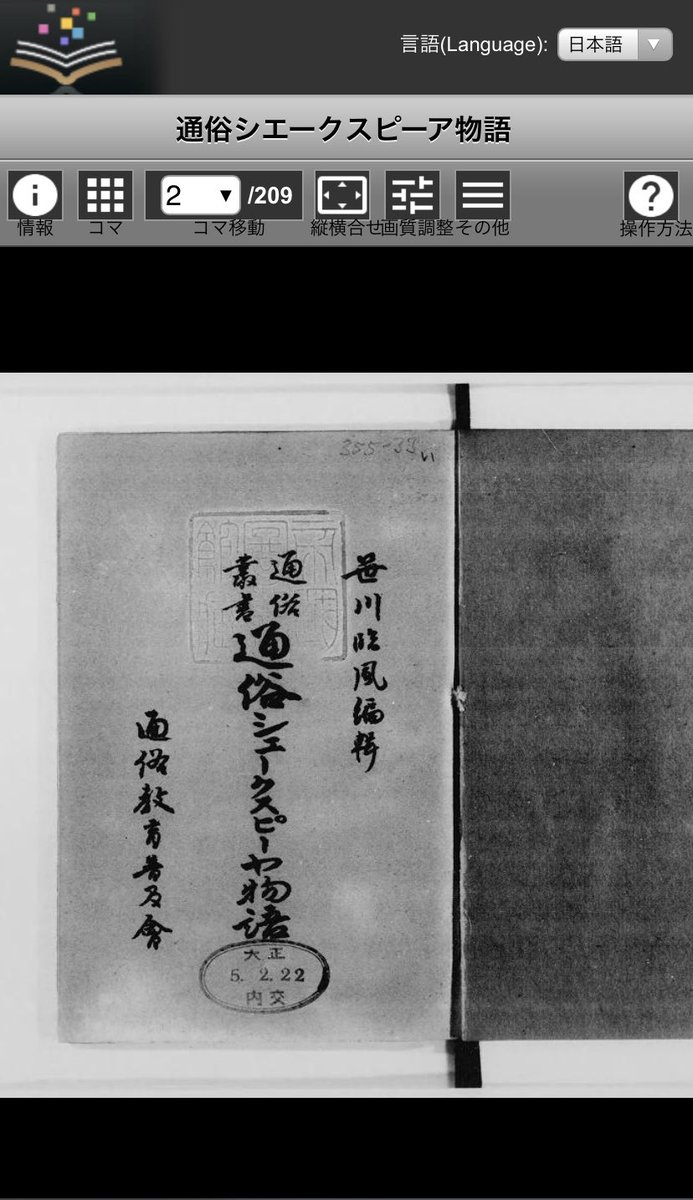 言語(Language):
日本語
通俗シエークスピーア物語
2
/209
情報
コマ
コマ移動
縦横合せ
画質調整
その他
操作方法
355-33
い
笹川臨風編輯
通俗
叢書
通俗シエークスピーヤ物語
通俗教育普及會
大正
5.2.22
内交